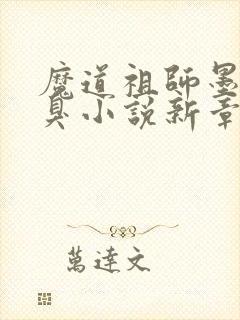 魔道祖師墨
臭小說新章
萬達文